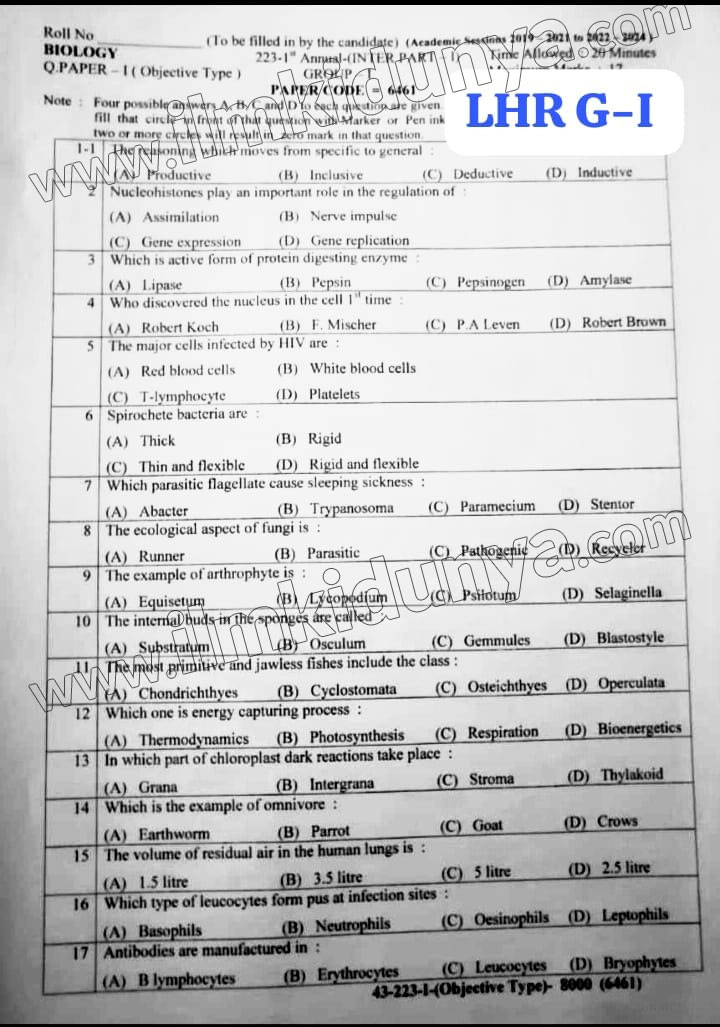 Roll No
(To be filled in by the candidate) (Academic Sessions 2019 – 2021 to 2022 – 2024)
BIOLOGY 223-1st Annual-(INTER PART – I) Time Allowed : 20 Minutes
Q.PAPER – I ( Objective Type ) GROUP – I
PAPER CODE = 6461
LHR G-I
Note : Four possible answers A, B, C and D to each question are given.
fill that circle in front of that question with Marker or Pen ink
two or more circles will result in zero mark in that question.
1-1 The reasoning which moves from specific to general :
(A) Productive (B) Inclusive (C) Deductive (D) Inductive
2 Nucleohistones play an important role in the regulation of :
(A) Assimilation (B) Nerve impulse
(C) Gene expression (D) Gene replication
3 Which is active form of protein digesting enzyme :
(A) Lipase (B) Pepsin (C) Pepsinogen (D) Amylase
4 Who discovered the nucleus in the cell 1st time :
(A) Robert Koch (B) F. Mischer (C) P.A Leven (D) Robert Brown
5 The major cells infected by HIV are :
(A) Red blood cells (B) White blood cells
(C) T-lymphocyte (D) Platelets
6 Spirochete bacteria are :
(A) Thick (B) Rigid
(C) Thin and flexible (D) Rigid and flexible
7 Which parasitic flagellate cause sleeping sickness :
(A) Abacter (B) Trypanosoma (C) Paramecium (D) Stentor
8 The ecological aspect of fungi is :
(A) Runner (B) Parasitic (C) Pathogenic (D) Recycler
9 The example of arthrophyte is :
(A) Equisetum (B) Lycopodium (C) Psilotum (D) Selaginella
10 The internal buds in the sponges are called
(A) Substratum (B) Osculum (C) Gemmules (D) Blastostyle
11 The most primitive and jawless fishes include the class :
(A) Chondrichthyes (B) Cyclostomata (C) Osteichthyes (D) Operculata
12 Which one is energy capturing process :
(A) Thermodynamics (B) Photosynthesis (C) Respiration (D) Bioenergetics
13 In which part of chloroplast dark reactions take place :
(A) Grana (B) Intergrana (C) Stroma (D) Thylakoid
14 Which is the example of omnivore :
(A) Earthworm (B) Parrot (C) Goat (D) Crows
15 The volume of residual air in the human lungs is :
(A) 1.5 litre (B) 3.5 litre (C) 5 litre (D) 2.5 litre
16 Which type of leucocytes form pus at infection sites :
(A) Basophils (B) Neutrophils (C) Oesinophils (D) Leptophils
17 Antibodies are manufactured in :
(A) B lymphocytes (B) Erythrocytes (C) Leucocytes (D) Bryophytes
43-223-I-(Objective Type)- 8000 (6461)
www.ilmkidunya.com
www.ilmkidunya.com